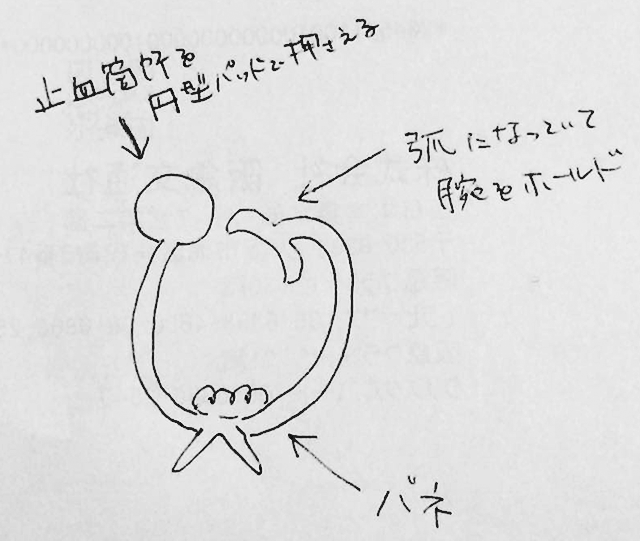 止血箇所を
円型パッドで押さえる
弧になっていて
腕をホールド
バネ